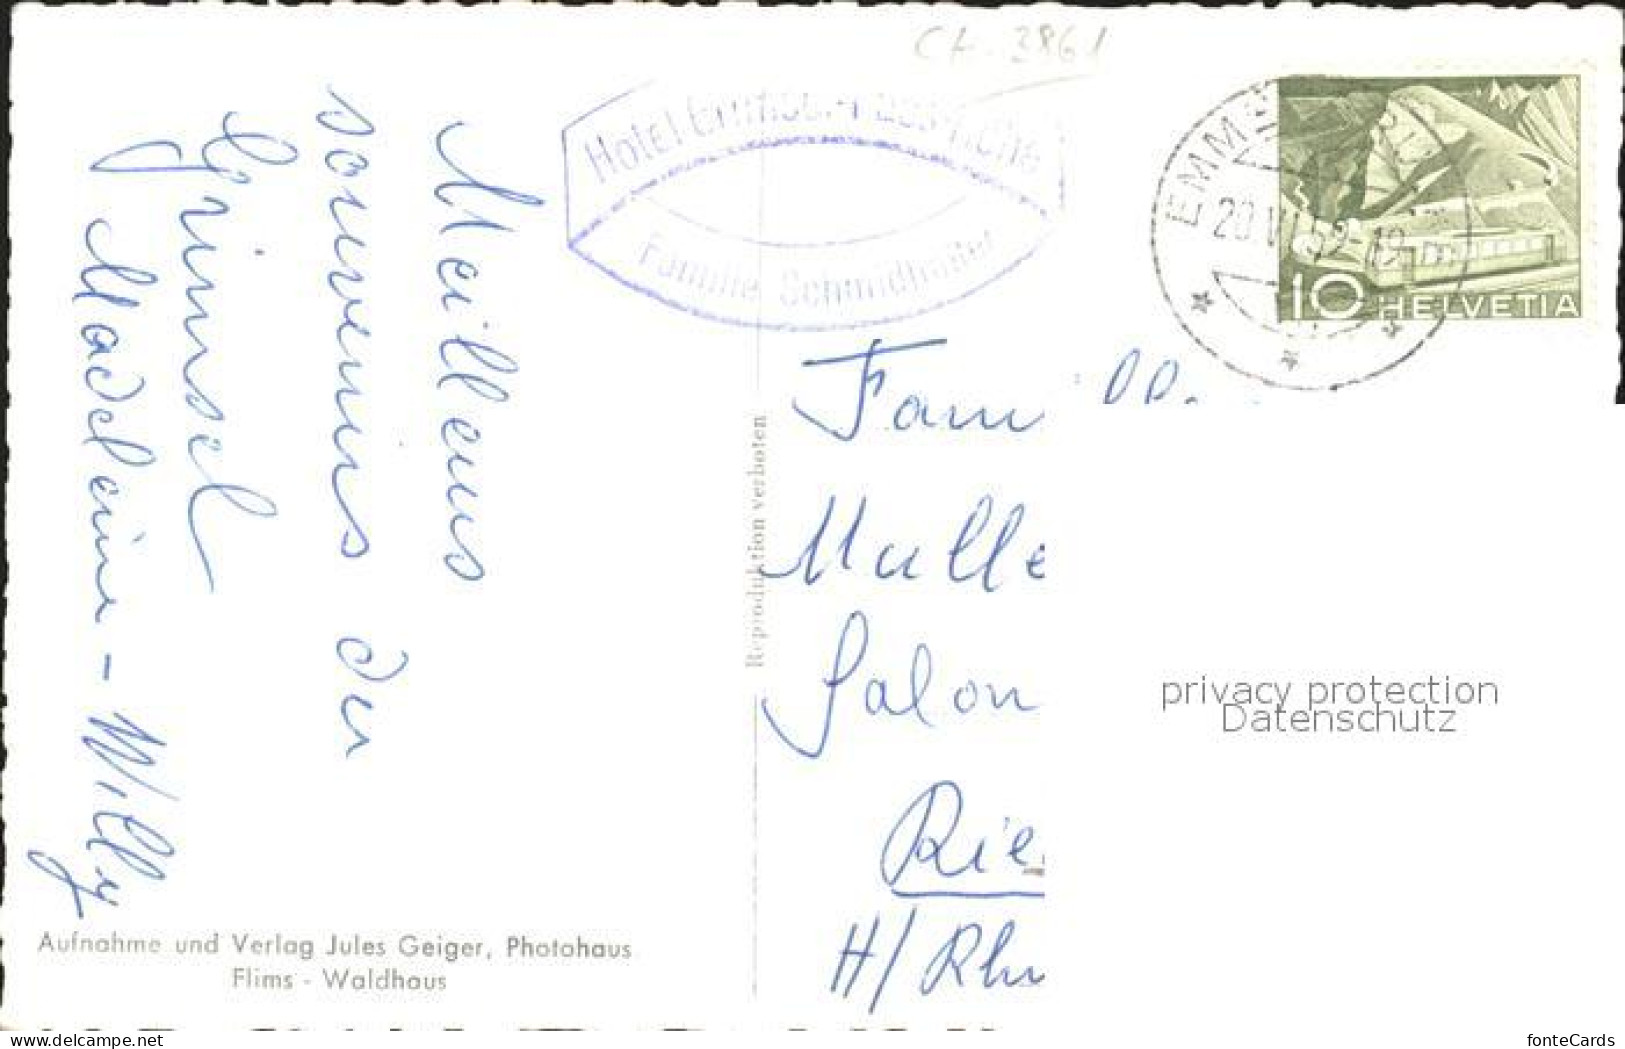 CH-3861
Hotel Grimsel-Passhöhe
Familie Schmidhalter
20.VI.52-19
10 HELVETIA
Meilleurs
souvenirs du
Grimsel
Madeleine - Willy
Reproduktion verboten
Fam
Mulle
Salon
Rie
H/Rh
privacy protection
Datenschutz
Aufnahme und Verlag Jules Geiger, Photohaus
Flims - Waldhaus
www.delcampe.net
fonteCards